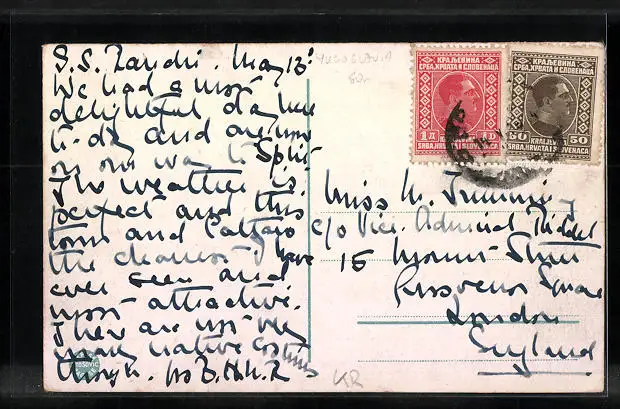 S.S. Zandri. May 13.
We had a most
delightful day here
to-day and are now
on our way to Split
The weather is
perfect and this
town and Cattaro
the cleanest I have
ever seen and
most attractive.
There are not very
many native costumes
though.
YUGOSLAVIA
КРАЉЕВИНА
СРБА, ХРВАТА И СЛОВЕНАЦА
1 Д 1 D
KRALJEVINA
SRBA, HRVATA I SLOVENACA
КРАЉЕВИНА
СРБА, ХРВАТА И СЛОВЕНАЦА
50 50
KRALJEVINA
SRBA, HRVATA I SLOVENACA
Miss M.
c/o Vice Admiral
15 Mount Street
Grosvenor Square
London
England
KR